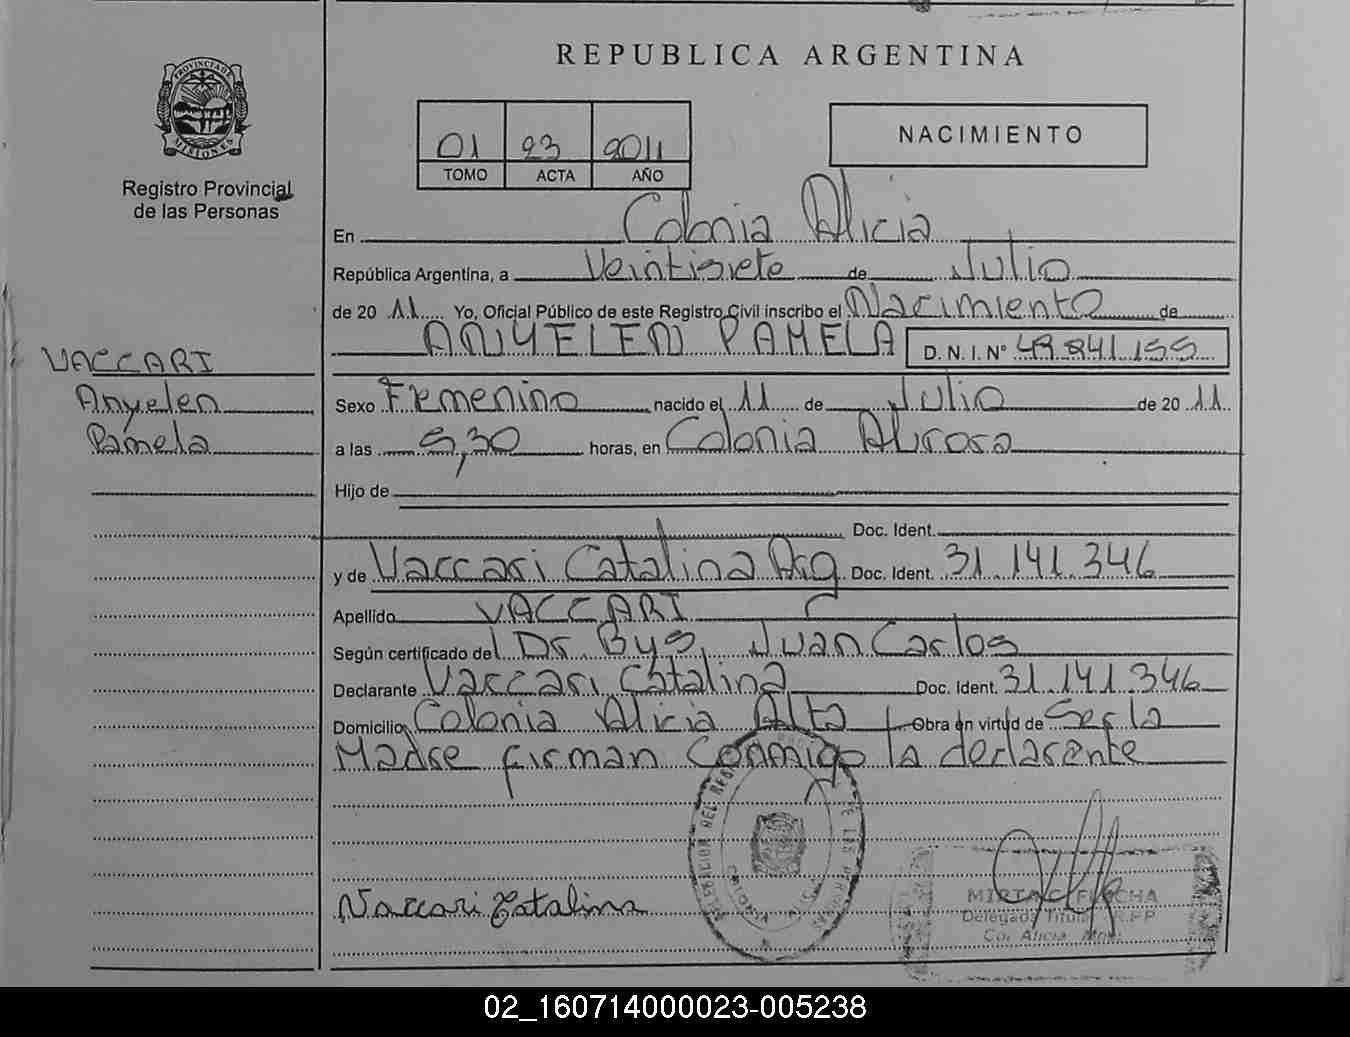 REPUBLICA ARGENTINA
PROVINCIA DE
MISIONES
Registro Provincial
de las Personas
01 23 2011
TOMO ACTA AÑO
NACIMIENTO
En Colonia Alicia
República Argentina, a Veintisiete de Julio
de 20 11 Yo, Oficial Público de este Registro Civil inscribo el Nacimiento de
ANYELEN PAMELA D. N. I. Nº
VACCARI
Anyelen
Pamela
Sexo Femenino nacido el 11 de Julio de 20 11
a las 5,30 horas, en Colonia
Hijo de
Doc. Ident.
y de Vaccari Catalina Arg Doc. Ident. 31.141.346
Apellido VACCARI
Según certificado del Dr. Bys, Juan Carlos
Declarante Vaccari Catalina Doc. Ident. 31.141.346
Domicilio Colonia Alicia Alta Obra en virtud de Ser la
Madre firman conmigo la declarante
Vaccari Catalina
MIRTA C.
Delegada Titular R.P.P
Col. Alicia Mnes.
02_160714000023-005238